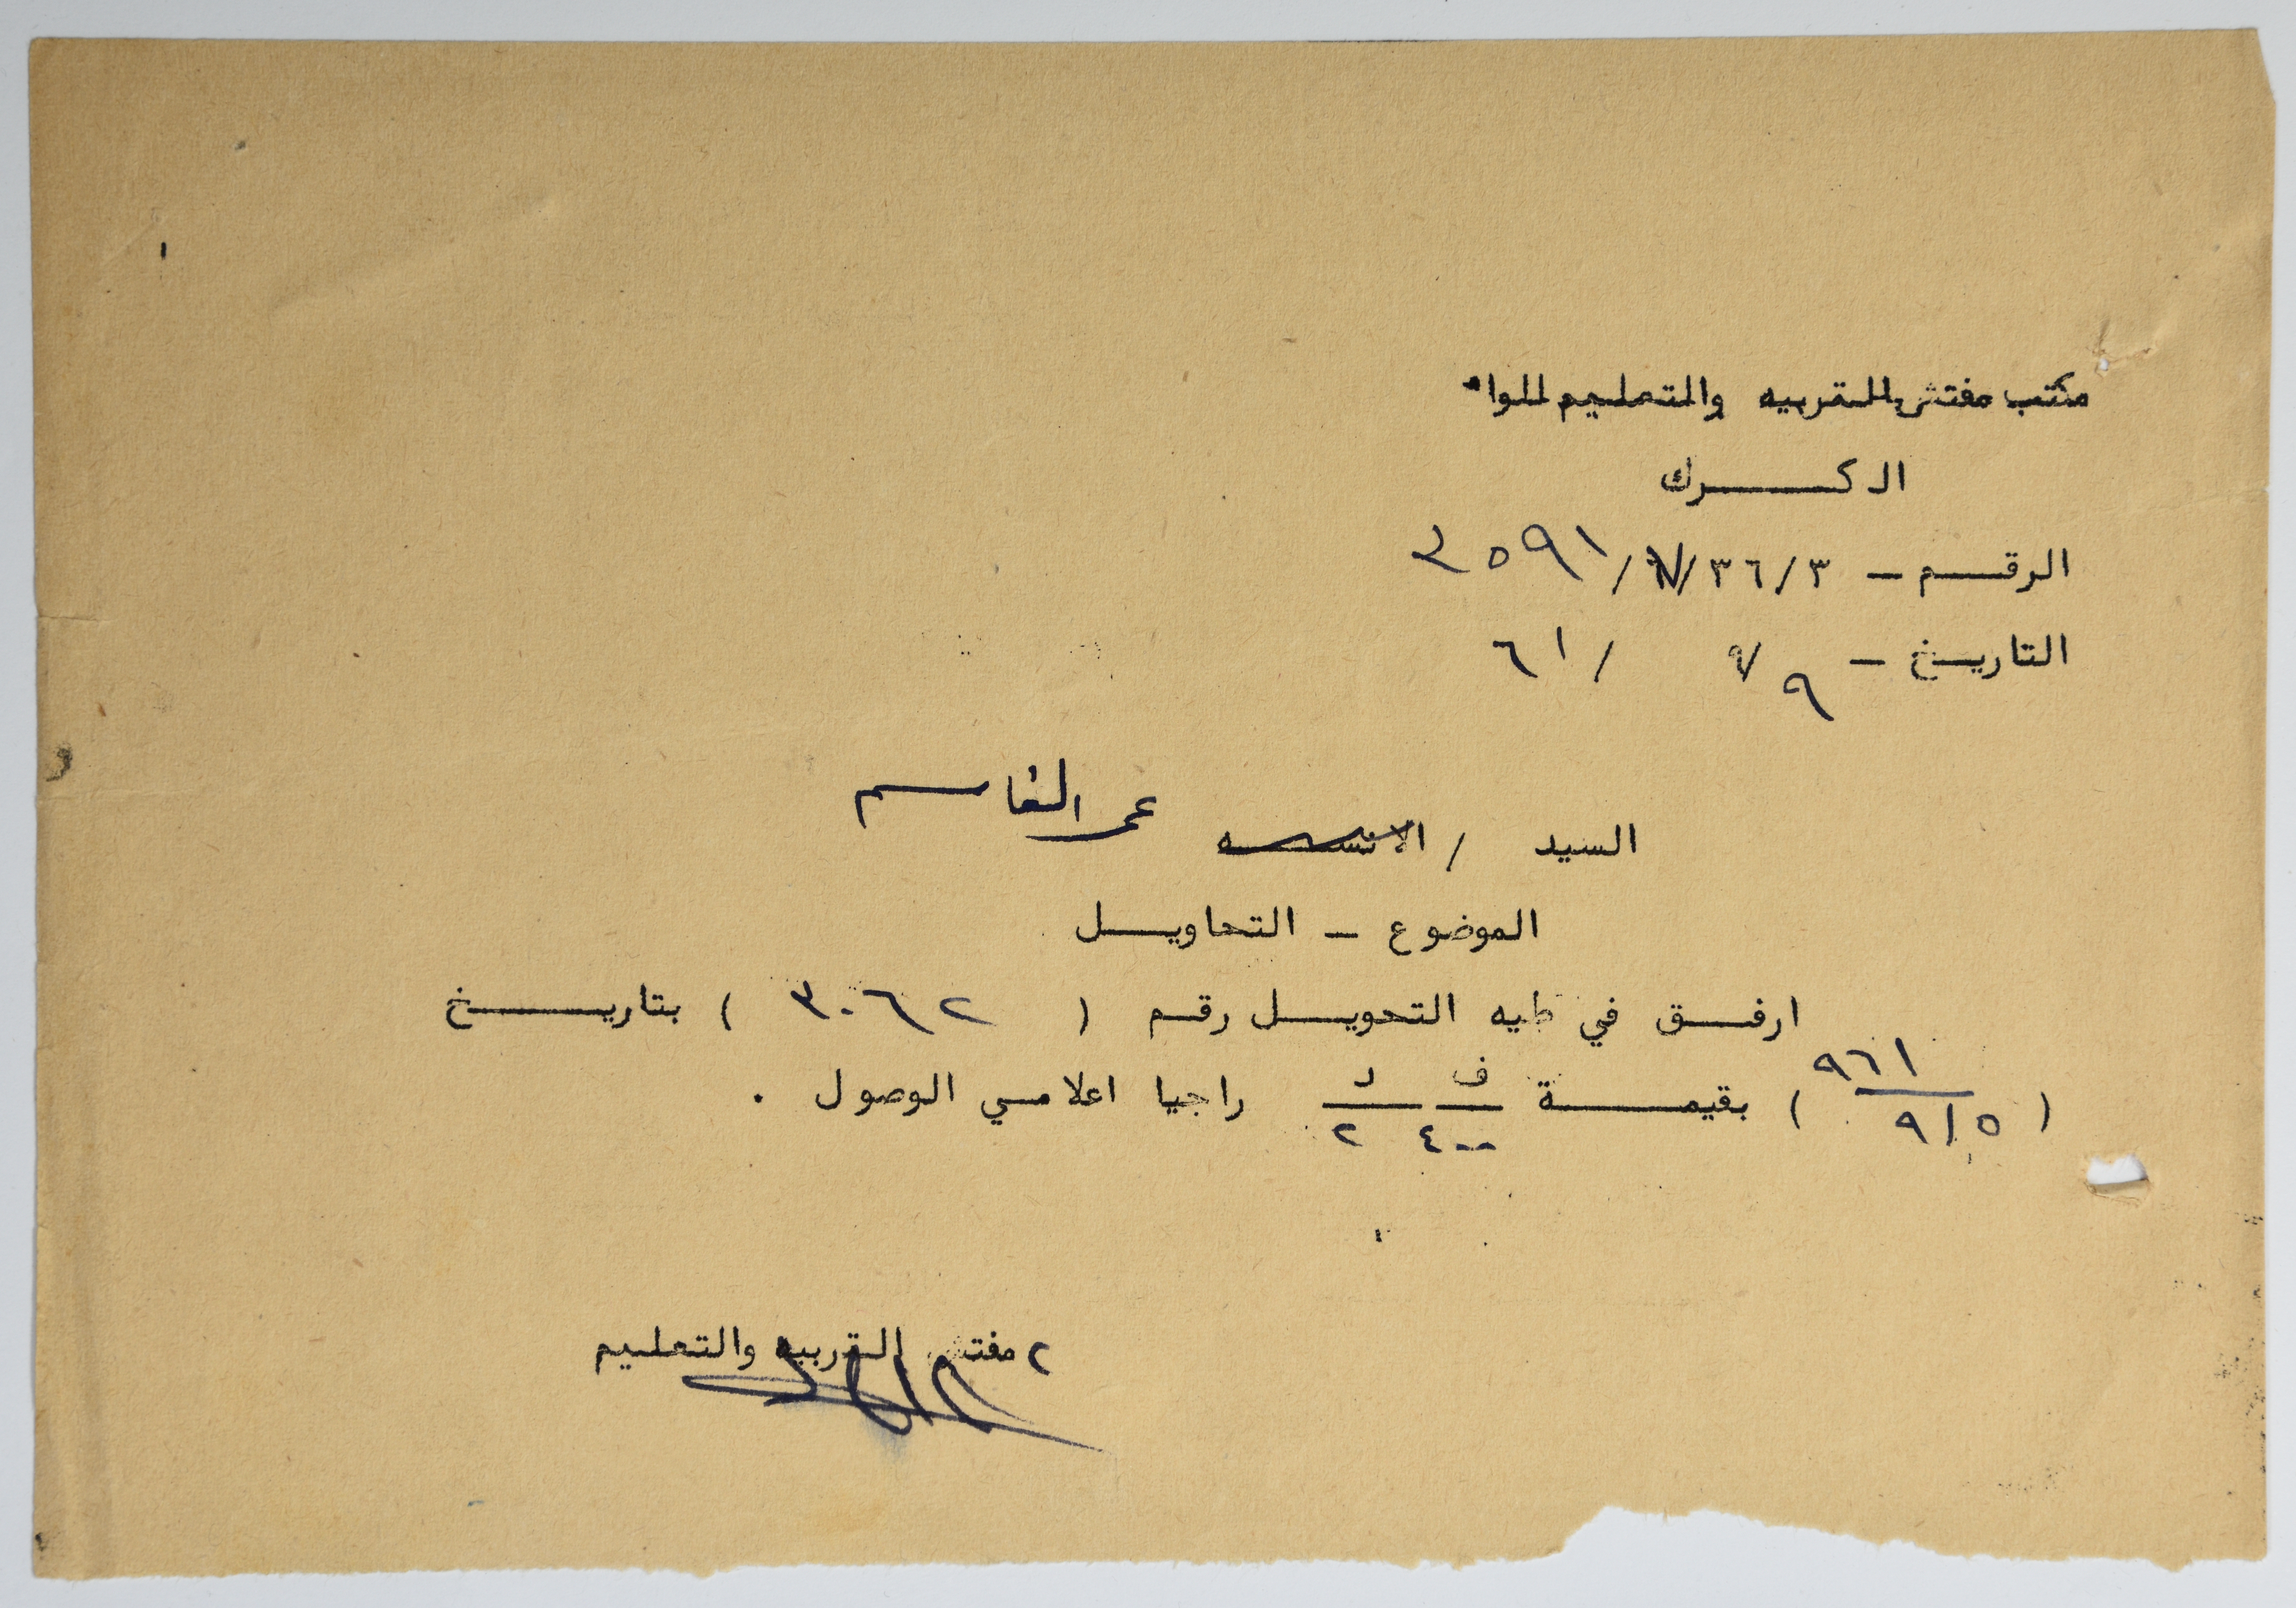 مكتب مفتش التربيه والتعليم للواء
الكرك
الرقم - ٣/٣٦/٧/٢٥٩١
التاريخ - ٩/٩/٦١
السيد / الانسه عمر القاسم
الموضوع - التحاويل
ارفق في طيه التحويل رقم ( ٣٠٦٢ ) بتاريخ
( ٥/٩/٩٦١ ) بقيمة ف ٤٠٠ د ٢ راجيا اعلامي الوصول .
مفتش التربيه والتعليم